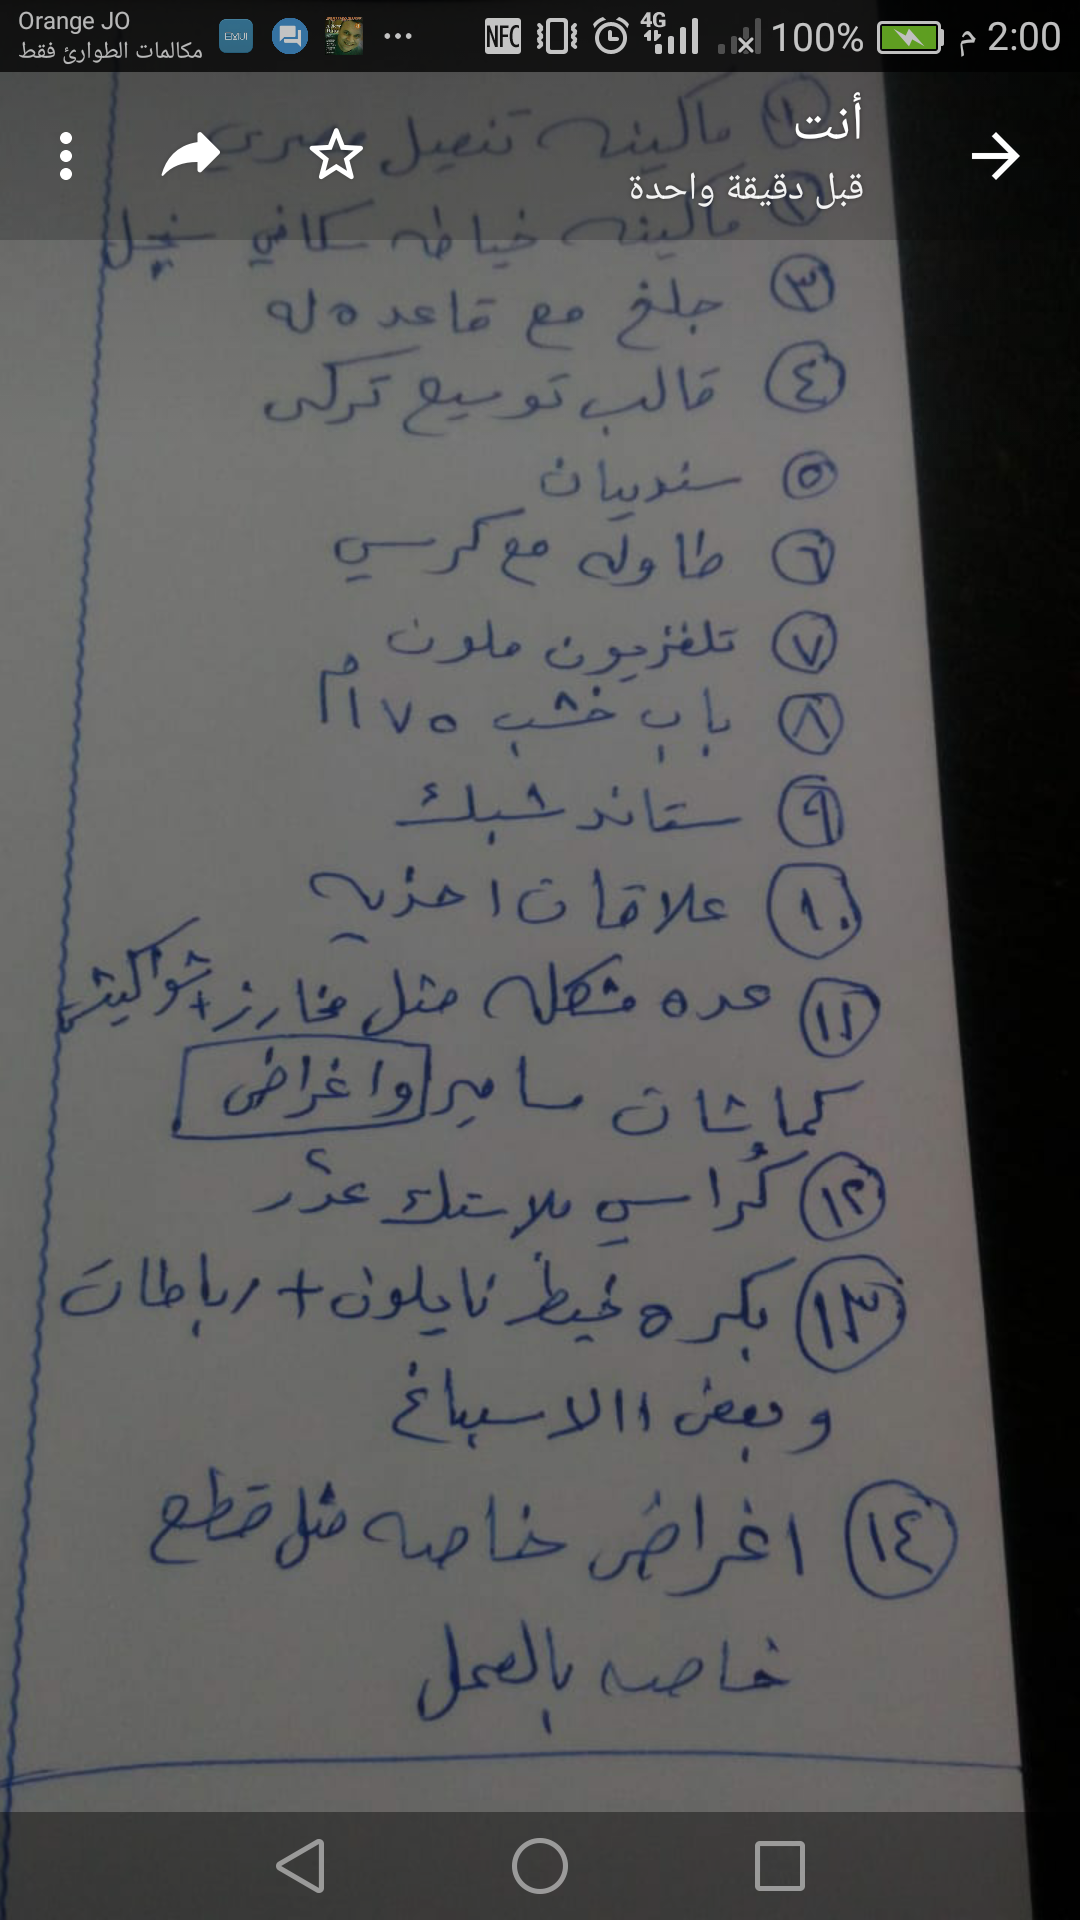 Orange JO
مكالمات الطوارئ فقط
EMUI
NFC
4G
100%
2:00 م
أنت
قبل دقيقة واحدة
① ماكينه تنصيل مصري
② ماكينه خياطه سكافي سنجل
③ جلخ مع قاعده له
④ قالب توسيع تركي
⑤ سنديان
⑥ طاوله مع كرسي
⑦ تلفزيون ملون
⑧ باب خشب ١٧٥م
⑨ ستاند شبك
⑩ علاقات احذيه
⑪ عده مشكله مثل مخارز + شواكيش
كماشات مسامير واغراض
⑫ كراسي بلاستك عدد ٢
⑬ بكره خيط نايلون + رباطات
وبعض االاسباغ
⑭ اغراض خاصه مثل قطع
خاصه بالعمل